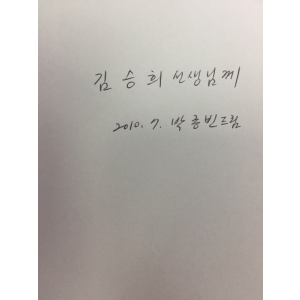 김승희 선생님께
2010. 7. 박종빈드림